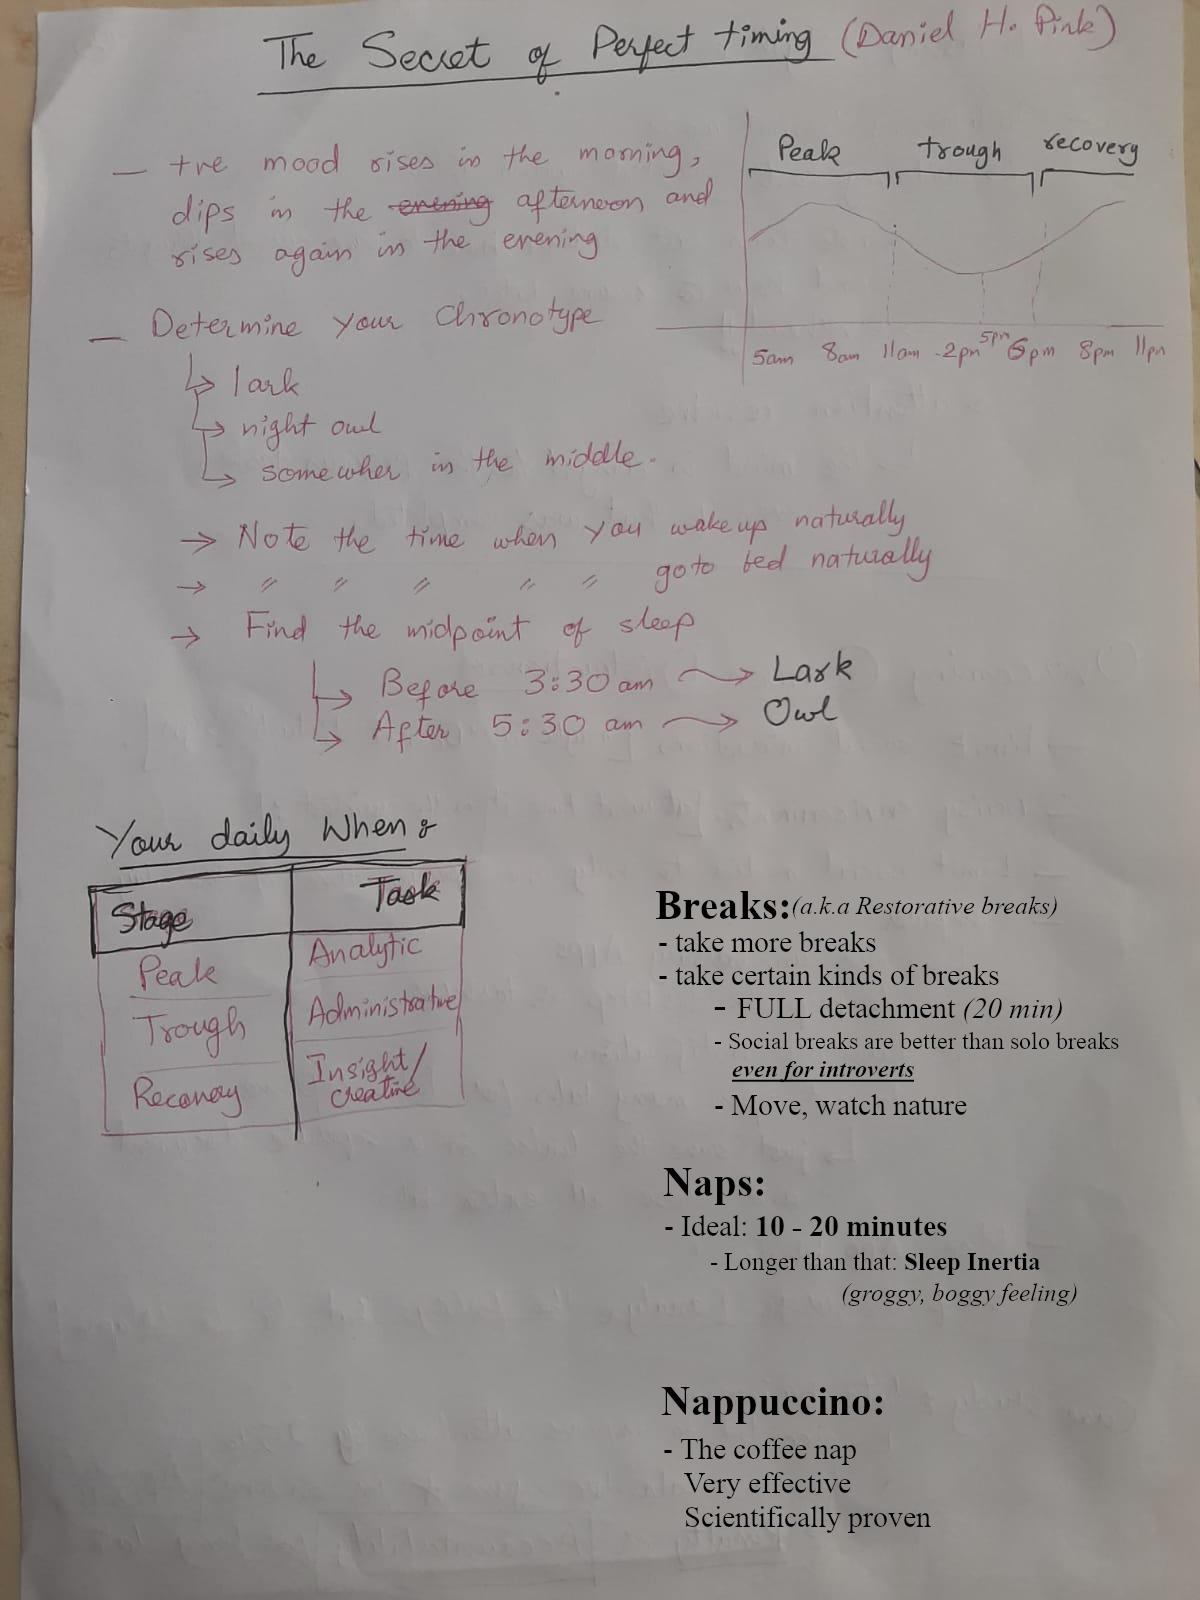 The Secret of Perfect timing (Daniel H. Pink)
— +ve mood rises in the morning,
dips in the evening afternoon and
rises again in the evening
Peak trough recovery
5am 8am 11am 2pm 5pm 6pm 8pm 11pm
— Determine your Chronotype
↳ lark
↳ night owl
↳ somewher in the middle.
→ Note the time when you wake up naturally
→ 〃 〃 〃 〃 〃 go to bed naturally
→ Find the midpoint of sleep
↳ Before 3:30 am → Lark
↳ After 5:30 am → Owl
Your daily When &
Stage Task
Peak Analytic
Trough Administrative
Recovery Insight/
creative
Breaks:(a.k.a Restorative breaks)
- take more breaks
- take certain kinds of breaks
- FULL detachment (20 min)
- Social breaks are better than solo breaks
even for introverts
- Move, watch nature
Naps:
- Ideal: 10 - 20 minutes
- Longer than that: Sleep Inertia
(groggy, boggy feeling)
Nappuccino:
- The coffee nap
Very effective
Scientifically proven